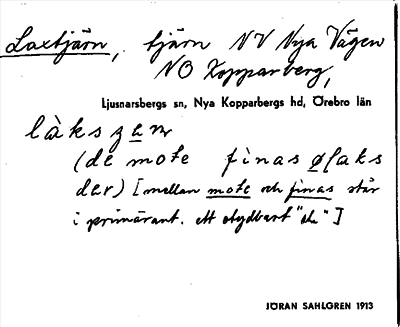 Laxtjärn, tjärn NV Nya Vägen
NO Kopparberg,
Ljusnarsbergs sn, Nya Kopparbergs hd, Örebro län
làks
(de mote finas ø laks
der) [mellan mote och finas står
i primäruppt. ett otydbart "de"]
JÖRAN SAHLGREN 1913